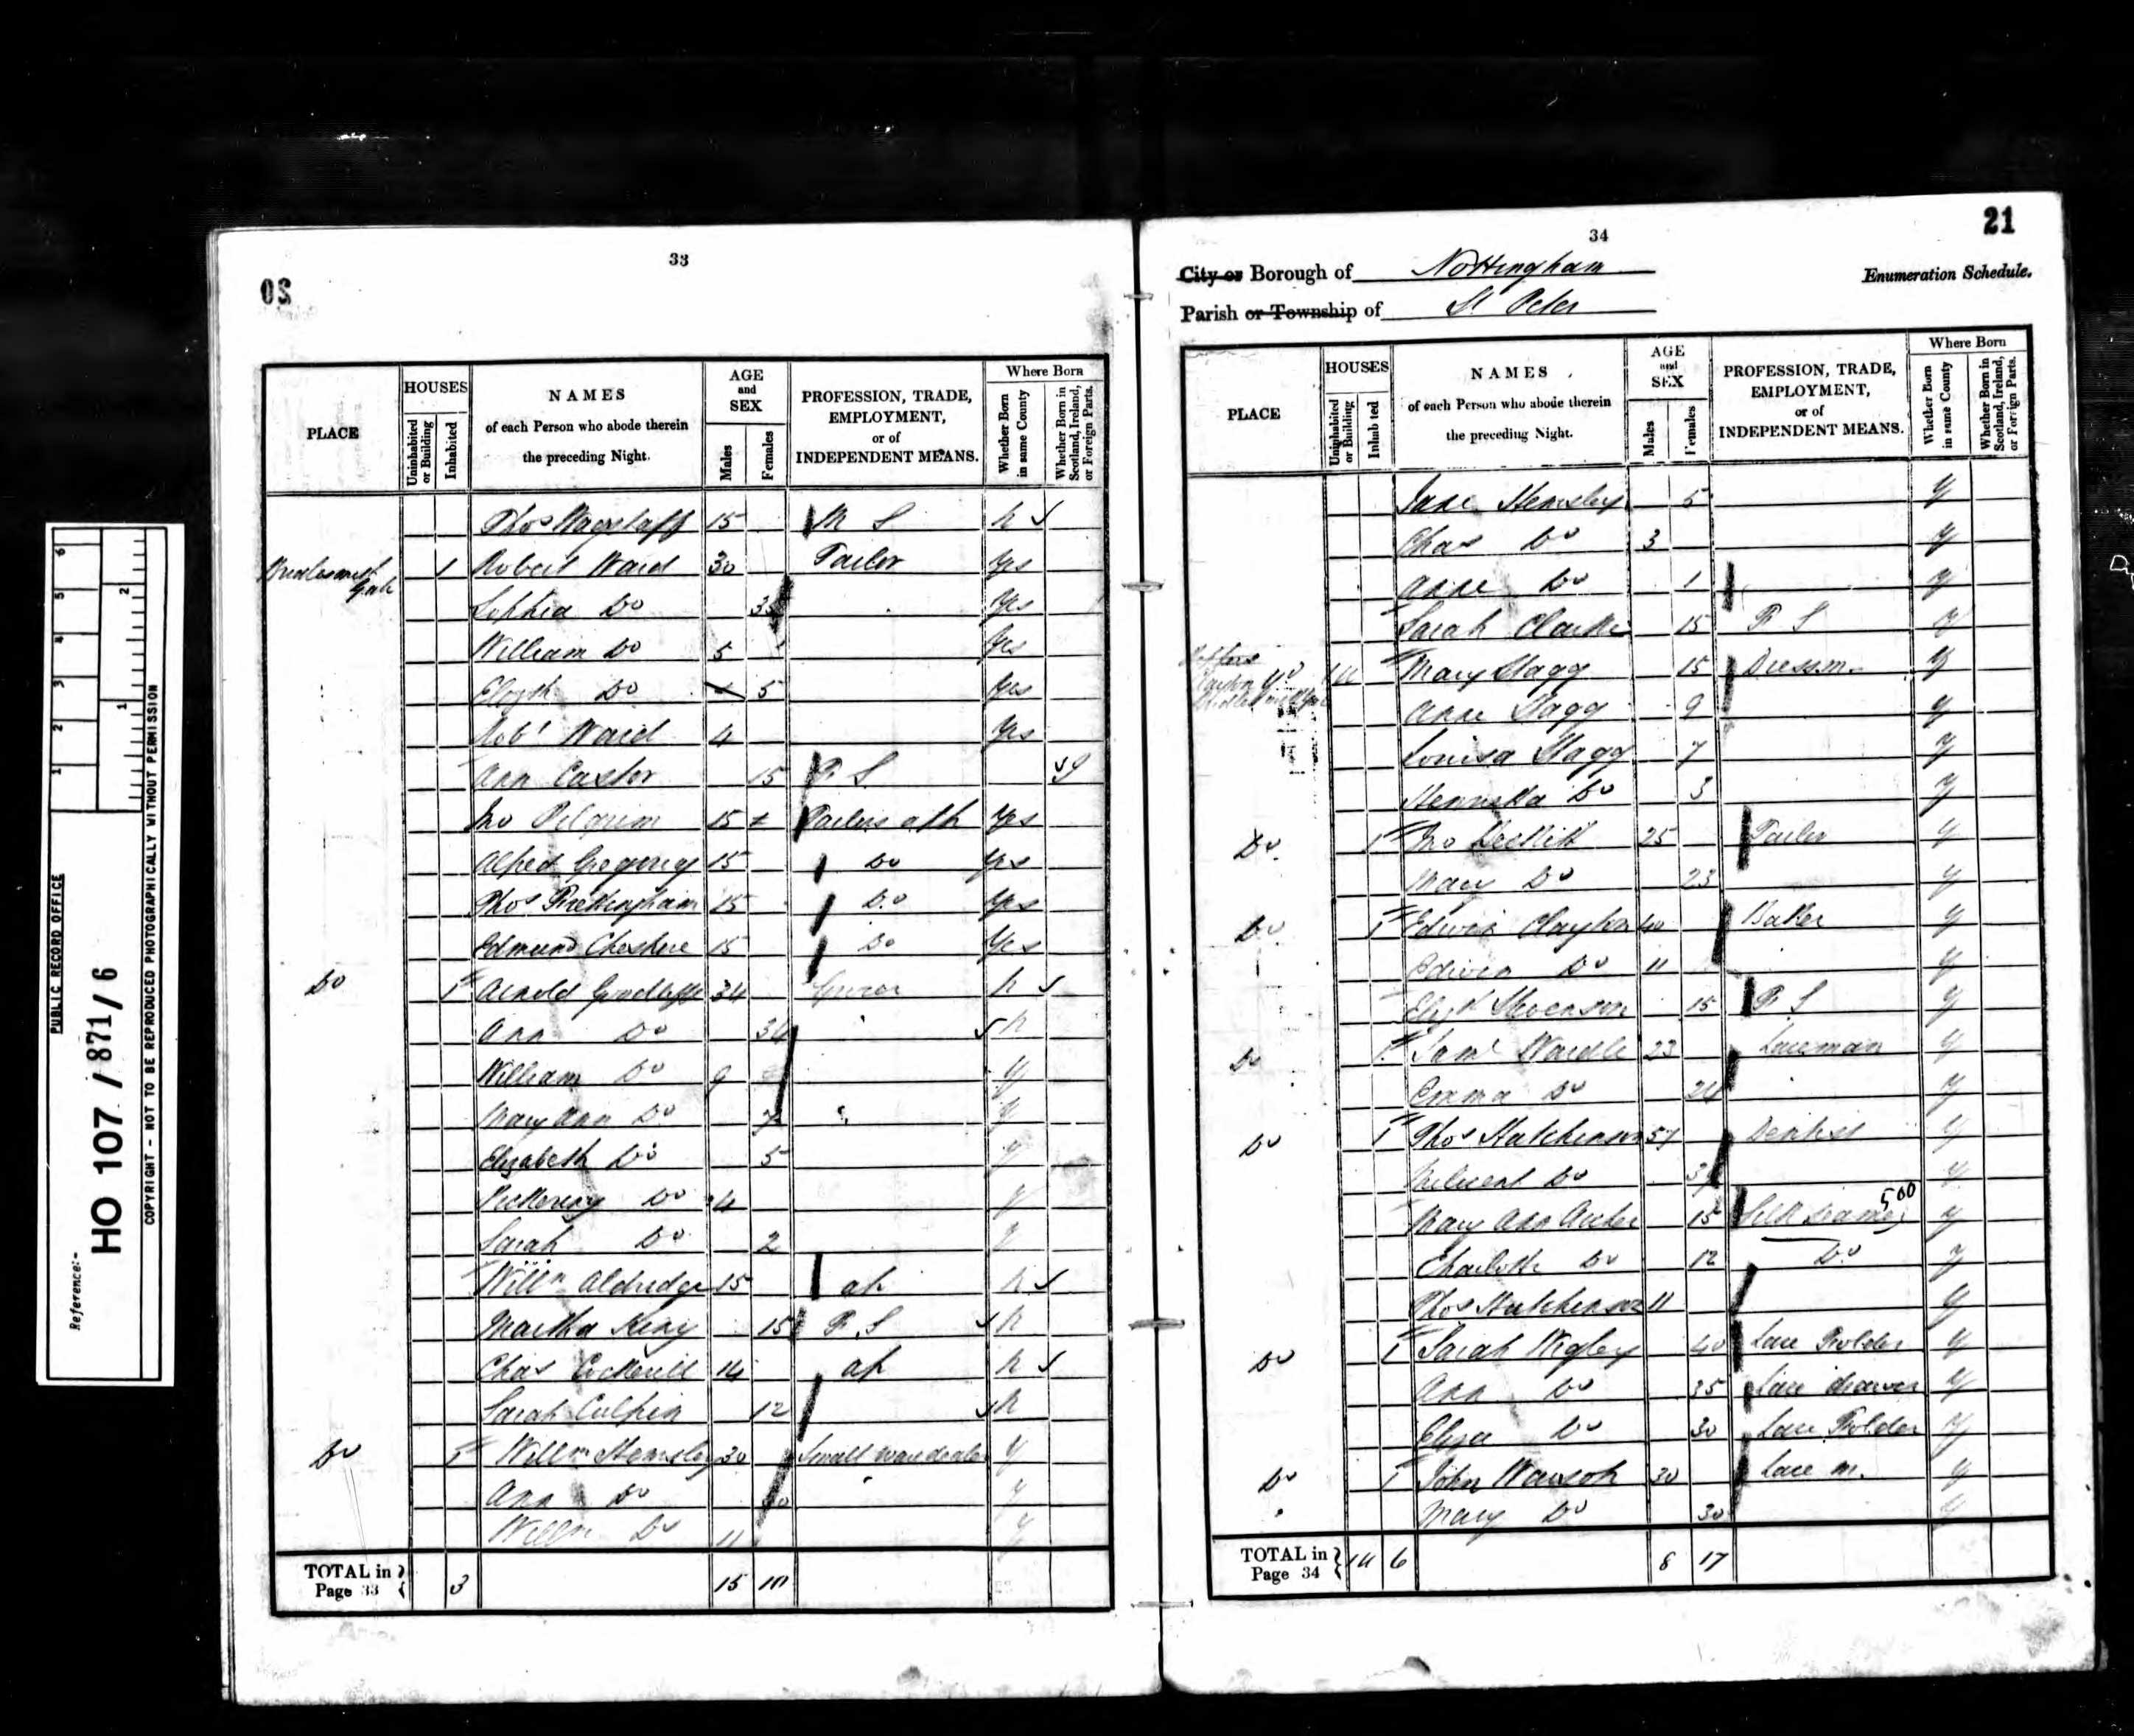 PUBLIC RECORD OFFICE
Reference:-
HO 107 / 871 / 6
COPYRIGHT - NOT TO BE REPRODUCED PHOTOGRAPHICALLY WITHOUT PERMISSION
1 2 3 4 5 6
1 2
33
PLACE
HOUSES
Uninhabited or Building
Inhabited
NAMES
of each Person who abode therein
the preceding Night.
AGE
and
SEX
Males
Females
PROFESSION, TRADE,
EMPLOYMENT,
or of
INDEPENDENT MEANS.
Where Born
Whether Born in same County
Whether Born in Scotland, Ireland, or Foreign Parts.
Thos Wagstaff 15 M S N
1 Robert Ward 30 Tailor Yes
Sophia Do Yes
William Do 5 Yes
Elizth Do 5 Yes
Robt Ward 4 Yes
Ann Castor 15 F S
Jno Pilgrim 15 Yes
Alfred Gregory 15 Do Yes
Thos 15 Do Yes
Edmund Cheshire 15 Do Yes
Do 1 Arnold 34 Grocer N
Ann Do N
William Do 9 Y
Mary Ann Do 7 Y
Elizabeth Do 5 Y
Pickering Do 4 Y
Sarah Do 2 Y
Willm Aldridge 15 ap N
Martha 15 F S N
Chas Cockerill 14 ap N
Sarah Culpin 12 N
Do 1 Willm Hemsley 30 Small ware dealer Y
Ann Do Y
Willm Do 11 Y
TOTAL in
Page 33 3 15 10
34
21
City or Borough of Nottingham
Enumeration Schedule.
Parish or Township of St Peter
PLACE
HOUSES
Uninhabited or Building
Inhabited
NAMES
of each Person who abode therein
the preceding Night.
AGE
and
SEX
Males
Females
PROFESSION, TRADE,
EMPLOYMENT,
or of
INDEPENDENT MEANS.
Where Born
Whether Born in same County
Whether Born in Scotland, Ireland, or Foreign Parts.
Jane Hemsley 5 Y
Chas Do 3 Y
Anne Do 1 Y
Sarah Clarke 15 F S Y
Mary Stagg 15 Dressm. Y
Anne Stagg 9 Y
Louisa Stagg 7 Y
Do 3 Y
Do 1 Jno 25 Tailor Y
Mary Do 23 Y
Do 1 Edwin Clayton 40 Baker Y
Edwin Do 11 Y
Elizth Stevenson 15 F S Y
Do 1 Saml Wardle 23 Laceman Y
Emma Do 24 Y
Do 1 Thos Hutchinson 57 Dentist Y
Do Y
Mary Ann 15 Silk 500 Y
Charlotte Do 12 Do Y
Thos Hutchinson 11 Y
Do 1 Sarah Wigley 40 Lace Folder Y
Ann Do 35 Lace drawer Y
Eliza Do 30 Lace Folder Y
Do 1 John 30 Lace m. Y
Mary Do 30 Y
TOTAL in
Page 34 6 8 17